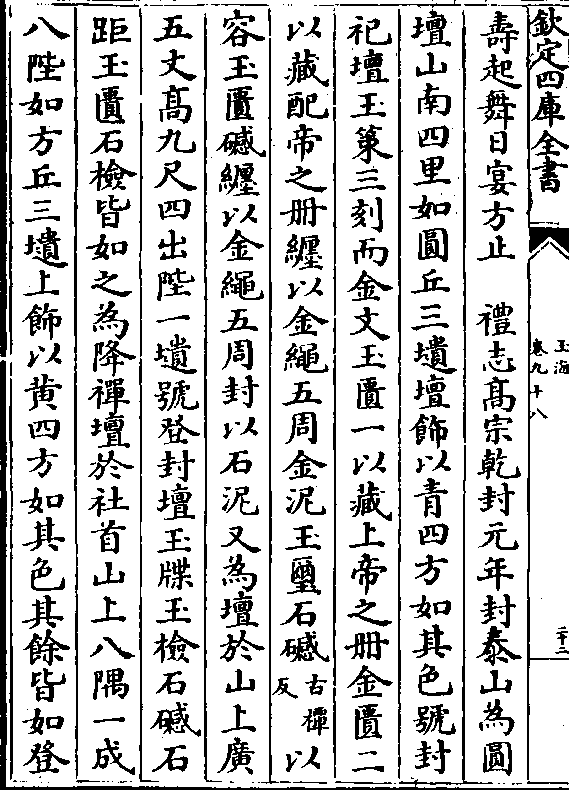 欽定四庫全書
玉海
卷九十八
二十二
壽起舞日宴方止　禮志髙宗乾封元年封泰山為圓
壇山南四里如圓丘三壝壇飾以青四方如其色號封
祀壇玉策三刻而金文玉匱一以藏上帝之册金匱二
以藏配帝之册纒以金繩五周金泥玉璽石䃭古禫反以
容玉匱䃭纒以金繩五周封以石泥又為壇於山上廣
五丈髙九尺四出陛一壝號登封壇玉牒玉檢石䃭石
距玉匱石檢皆如之為降禪壇於社首山上八隅一成
八陛如方丘三壝上飾以黄四方如其色其餘皆如登